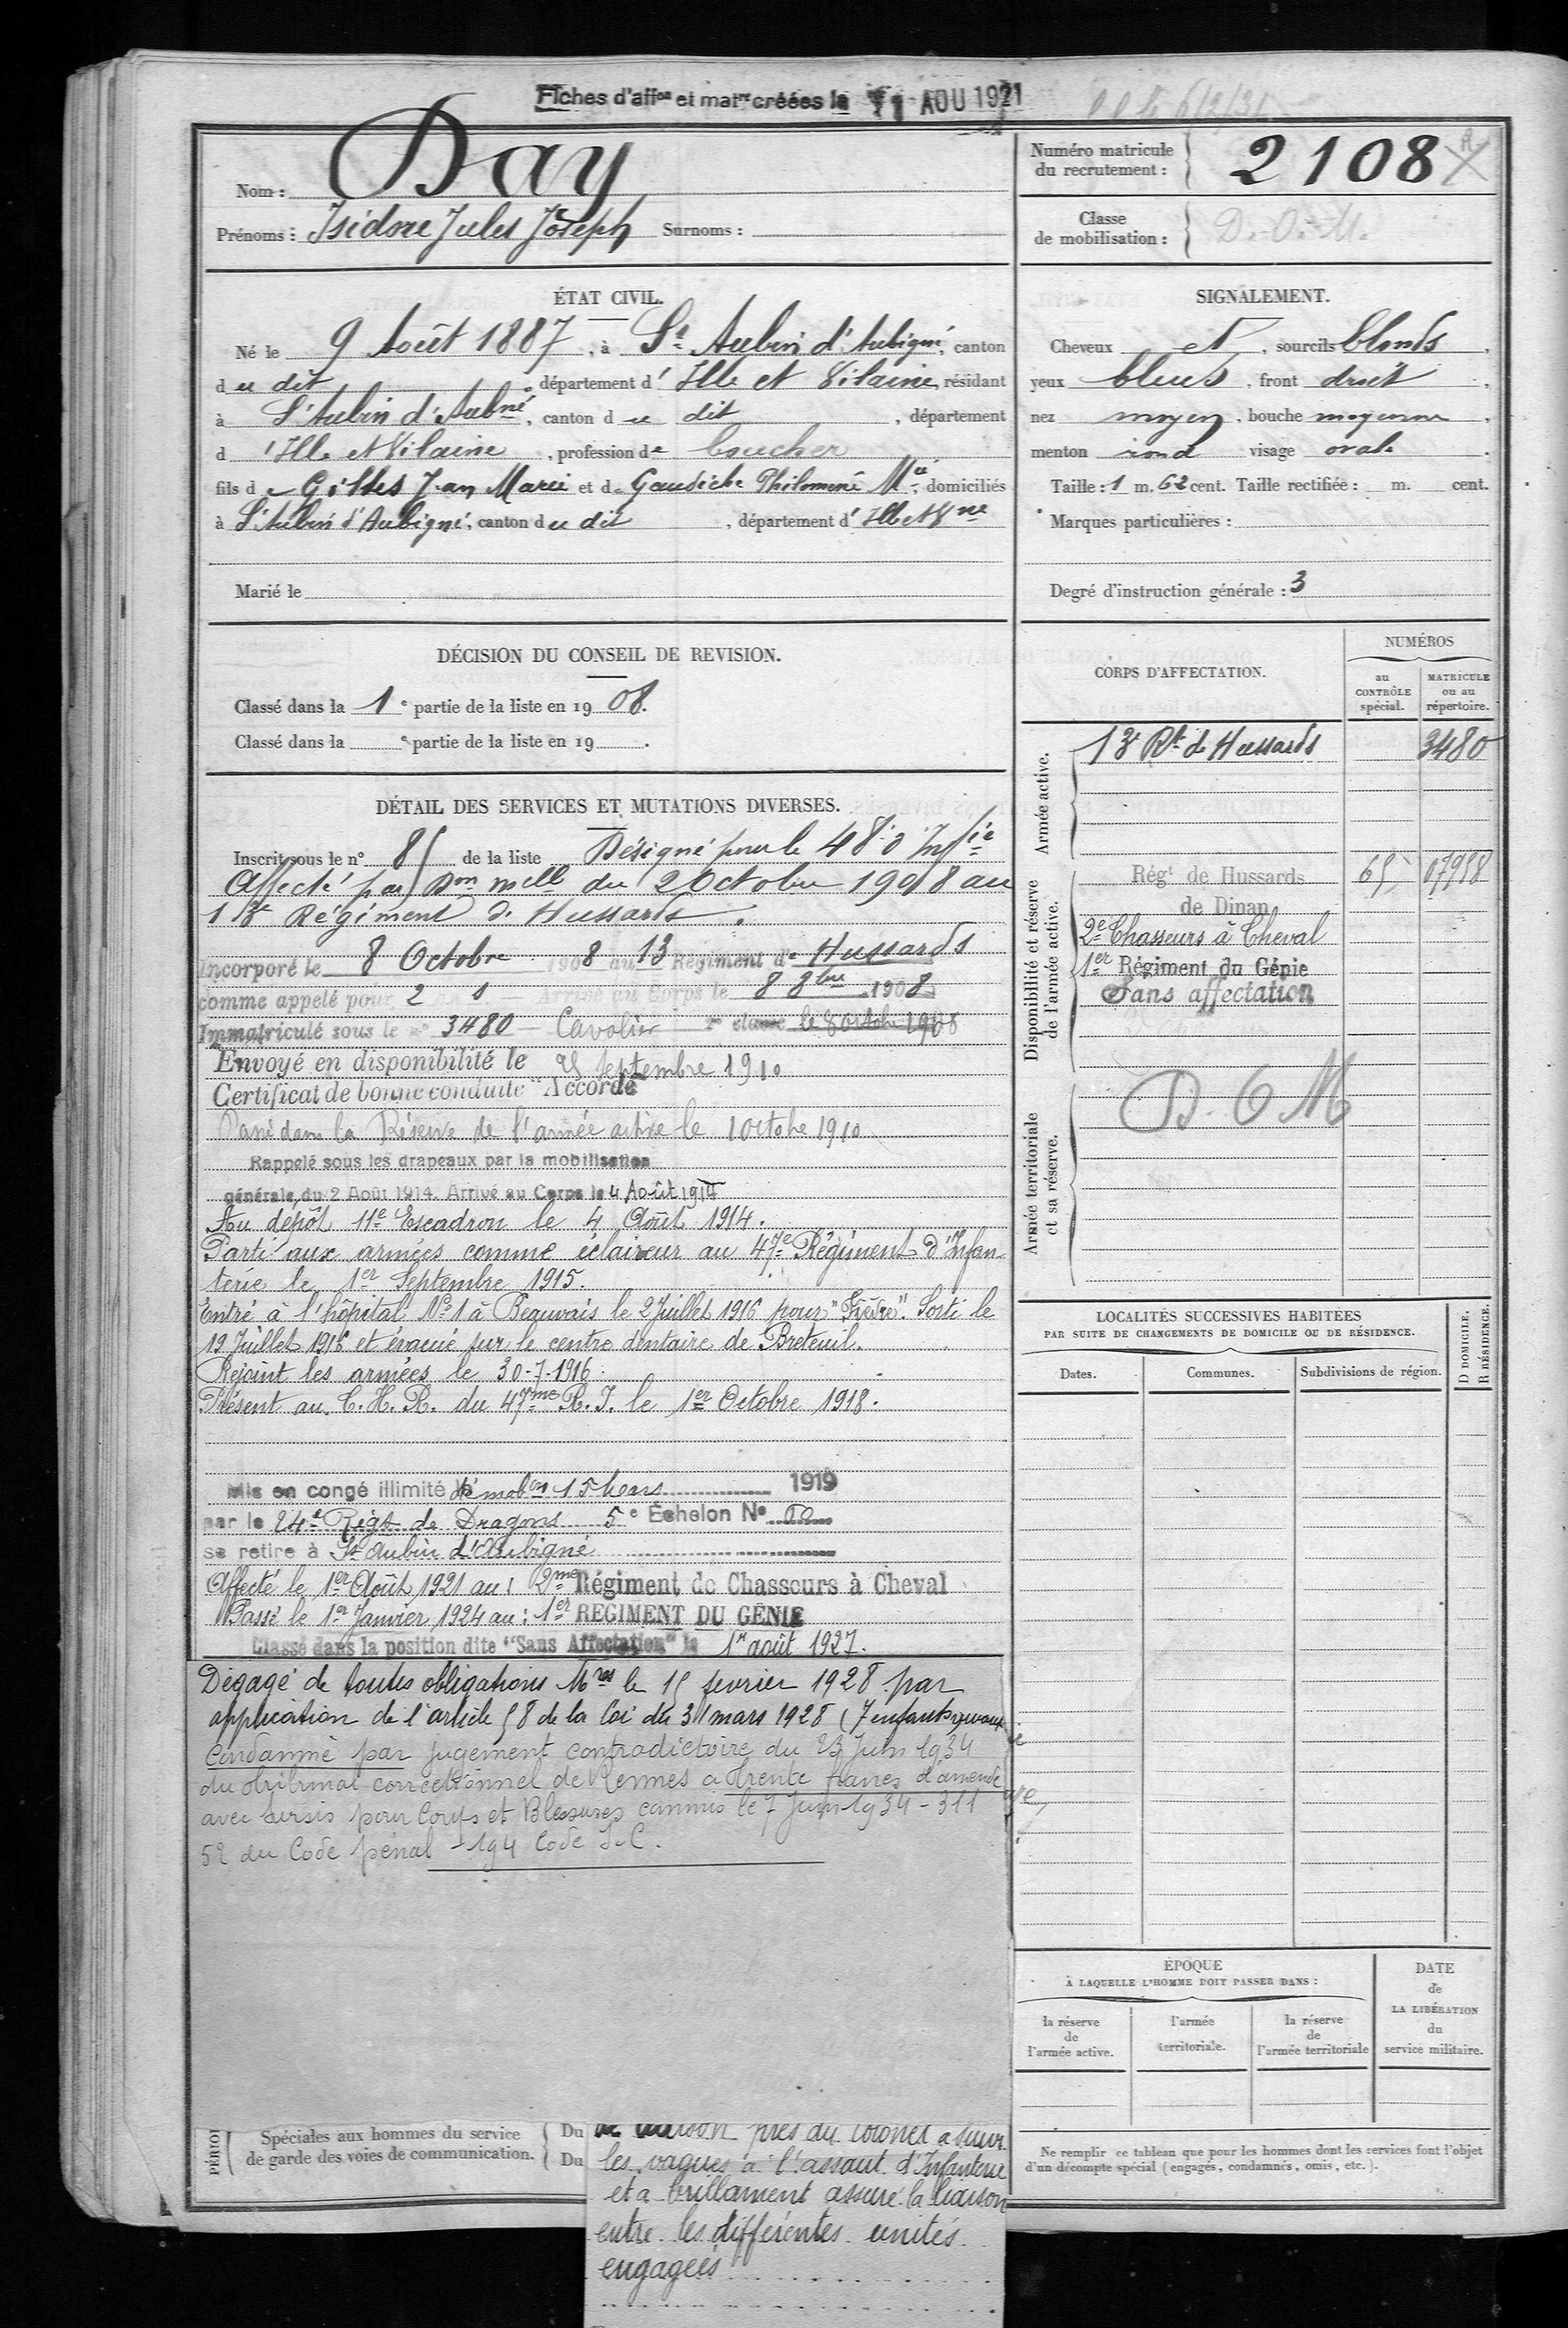 Fiches d'aff<sup>on</sup> et mat<sup>re</sup> créées le 11 AOU 1921
Nom : Day
Prénoms : Isidore Jules Joseph Surnoms :
Numéro matricule du recrutement : 2108
Classe de mobilisation : D.O.M.
ÉTAT CIVIL.
Né le 9 Août 1887, à St Aubin d'Aubigné, canton
du dit, département d'Ille et Vilaine, résidant
à St Aubin d'Aubné, canton du dit, département
d'Ille et Vilaine, profession de boucher
fils de Gilles Jean Marie et de Gaudiche Philomène Mie, domiciliés
à St Aubin d'Aubigné, canton du dit, département d'Ille et Vne
Marié le
SIGNALEMENT.
Cheveux et, sourcils blonds,
yeux bleus, front droit,
nez moyen, bouche moyenne,
menton rond visage ovale.
Taille : 1 m. 62 cent. Taille rectifiée : m. cent.
Marques particulières :
Degré d'instruction générale : 3
DÉCISION DU CONSEIL DE REVISION.
Classé dans la 1e partie de la liste en 1908.
Classé dans la e partie de la liste en 19 .
DÉTAIL DES SERVICES ET MUTATIONS DIVERSES.
Inscrit sous le n° 85 de la liste Désigné pour le 48e d'Inf<sup>ie</sup>
Affecté par Don melle du 2 Octobre 1908 au
13e Régiment de Hussards.
Incorporé le 8 Octobre 1908 au 13 Régiment de Hussards
comme appelé pour 2 Arrivé au Corps le 8 8bre 1908
Immatriculé sous le n° 3480 Cavalier 2e classe le 8 octobre 1908
Envoyé en disponibilité le 25 septembre 1910
Certificat de bonne conduite "Accordé"
Passé dans la Réserve de l'armée active le 1 octobre 1910
Rappelé sous les drapeaux par la mobilisation
générale du 2 Août 1914. Arrivé au Corps le 4 Août 1914
Au dépôt 11e Escadron le 4 Août 1914.
Parti aux armées comme éclaireur au 47e Régiment d'Infan
terie le 1er Septembre 1915.
Entré à l'hôpital N°1 à Beauvais le 2 Juillet 1916 pour "Fièvre". Sorti le
19 Juillet 1916 et évacué sur le centre dentaire de Breteuil.
Rejoint les armées le 30-7-1916.
Présent au C.H.R. du 47me R.I. le 1er Octobre 1918.
Mis en congé illimité de démobon 15 Mars 1919
par le 24e Régt de Dragons 5e Échelon N° 60
se retire à St Aubin d'Aubigné
Affecté le 1er Août 1921 au : 2me Régiment de Chasseurs à Cheval
Passé le 1er Janvier 1924 au : 1er REGIMENT DU GÉNIE
Classé dans la position dite "Sans Affectation" le 1er août 1927.
Dégagé de toutes obligations Mres le 15 fevrier 1928 par
application de l'article 58 de la loi du 31 mars 1928 (7 enfants vivants
Condamné par jugement contradictoire du 23 Juin 1934
du tribunal correctionnel de Rennes a trente francs d'amende
avec sursis pour Coups et Blessures commis le 7 Juin 1934 - 311
52 du Code pénal - 194 Code I.C.
CORPS D'AFFECTATION.
NUMÉROS
au CONTRÔLE spécial.
MATRICULE ou au répertoire.
Armée active.
13e Rt de Hussards 3480
Disponibilité et réserve de l'armée active.
Régt de Hussards
de Dinan
2e Chasseurs à Cheval
1er Régiment du Génie
Sans affectation
Armée territoriale et sa réserve.
D.O.M
LOCALITÉS SUCCESSIVES HABITÉES
PAR SUITE DE CHANGEMENTS DE DOMICILE OU DE RÉSIDENCE.
Dates. Communes. Subdivisions de région.
D DOMICILE. R RÉSIDENCE.
ÉPOQUE
À LAQUELLE L'HOMME DOIT PASSER DANS :
la réserve de l'armée active.
l'armée territoriale.
la réserve de l'armée territoriale
DATE de LA LIBÉRATION du service militaire.
Ne remplir ce tableau que pour les hommes dont les services font l'objet
d'un décompte spécial (engagés, condamnés, omis, etc.).
Spéciales aux hommes du service
de garde des voies de communication.
Du
Du
près du Colonel a suivi
les vagues à l'assaut d'Infanterie
et a brillament assuré la liaison
entre les différentes unités
engagées